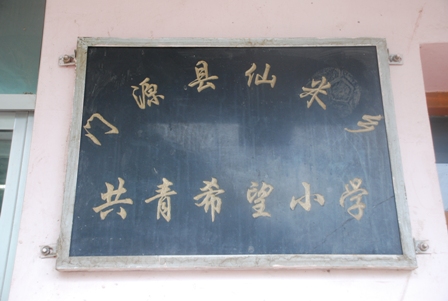 门源县仙米乡
共青希望小学